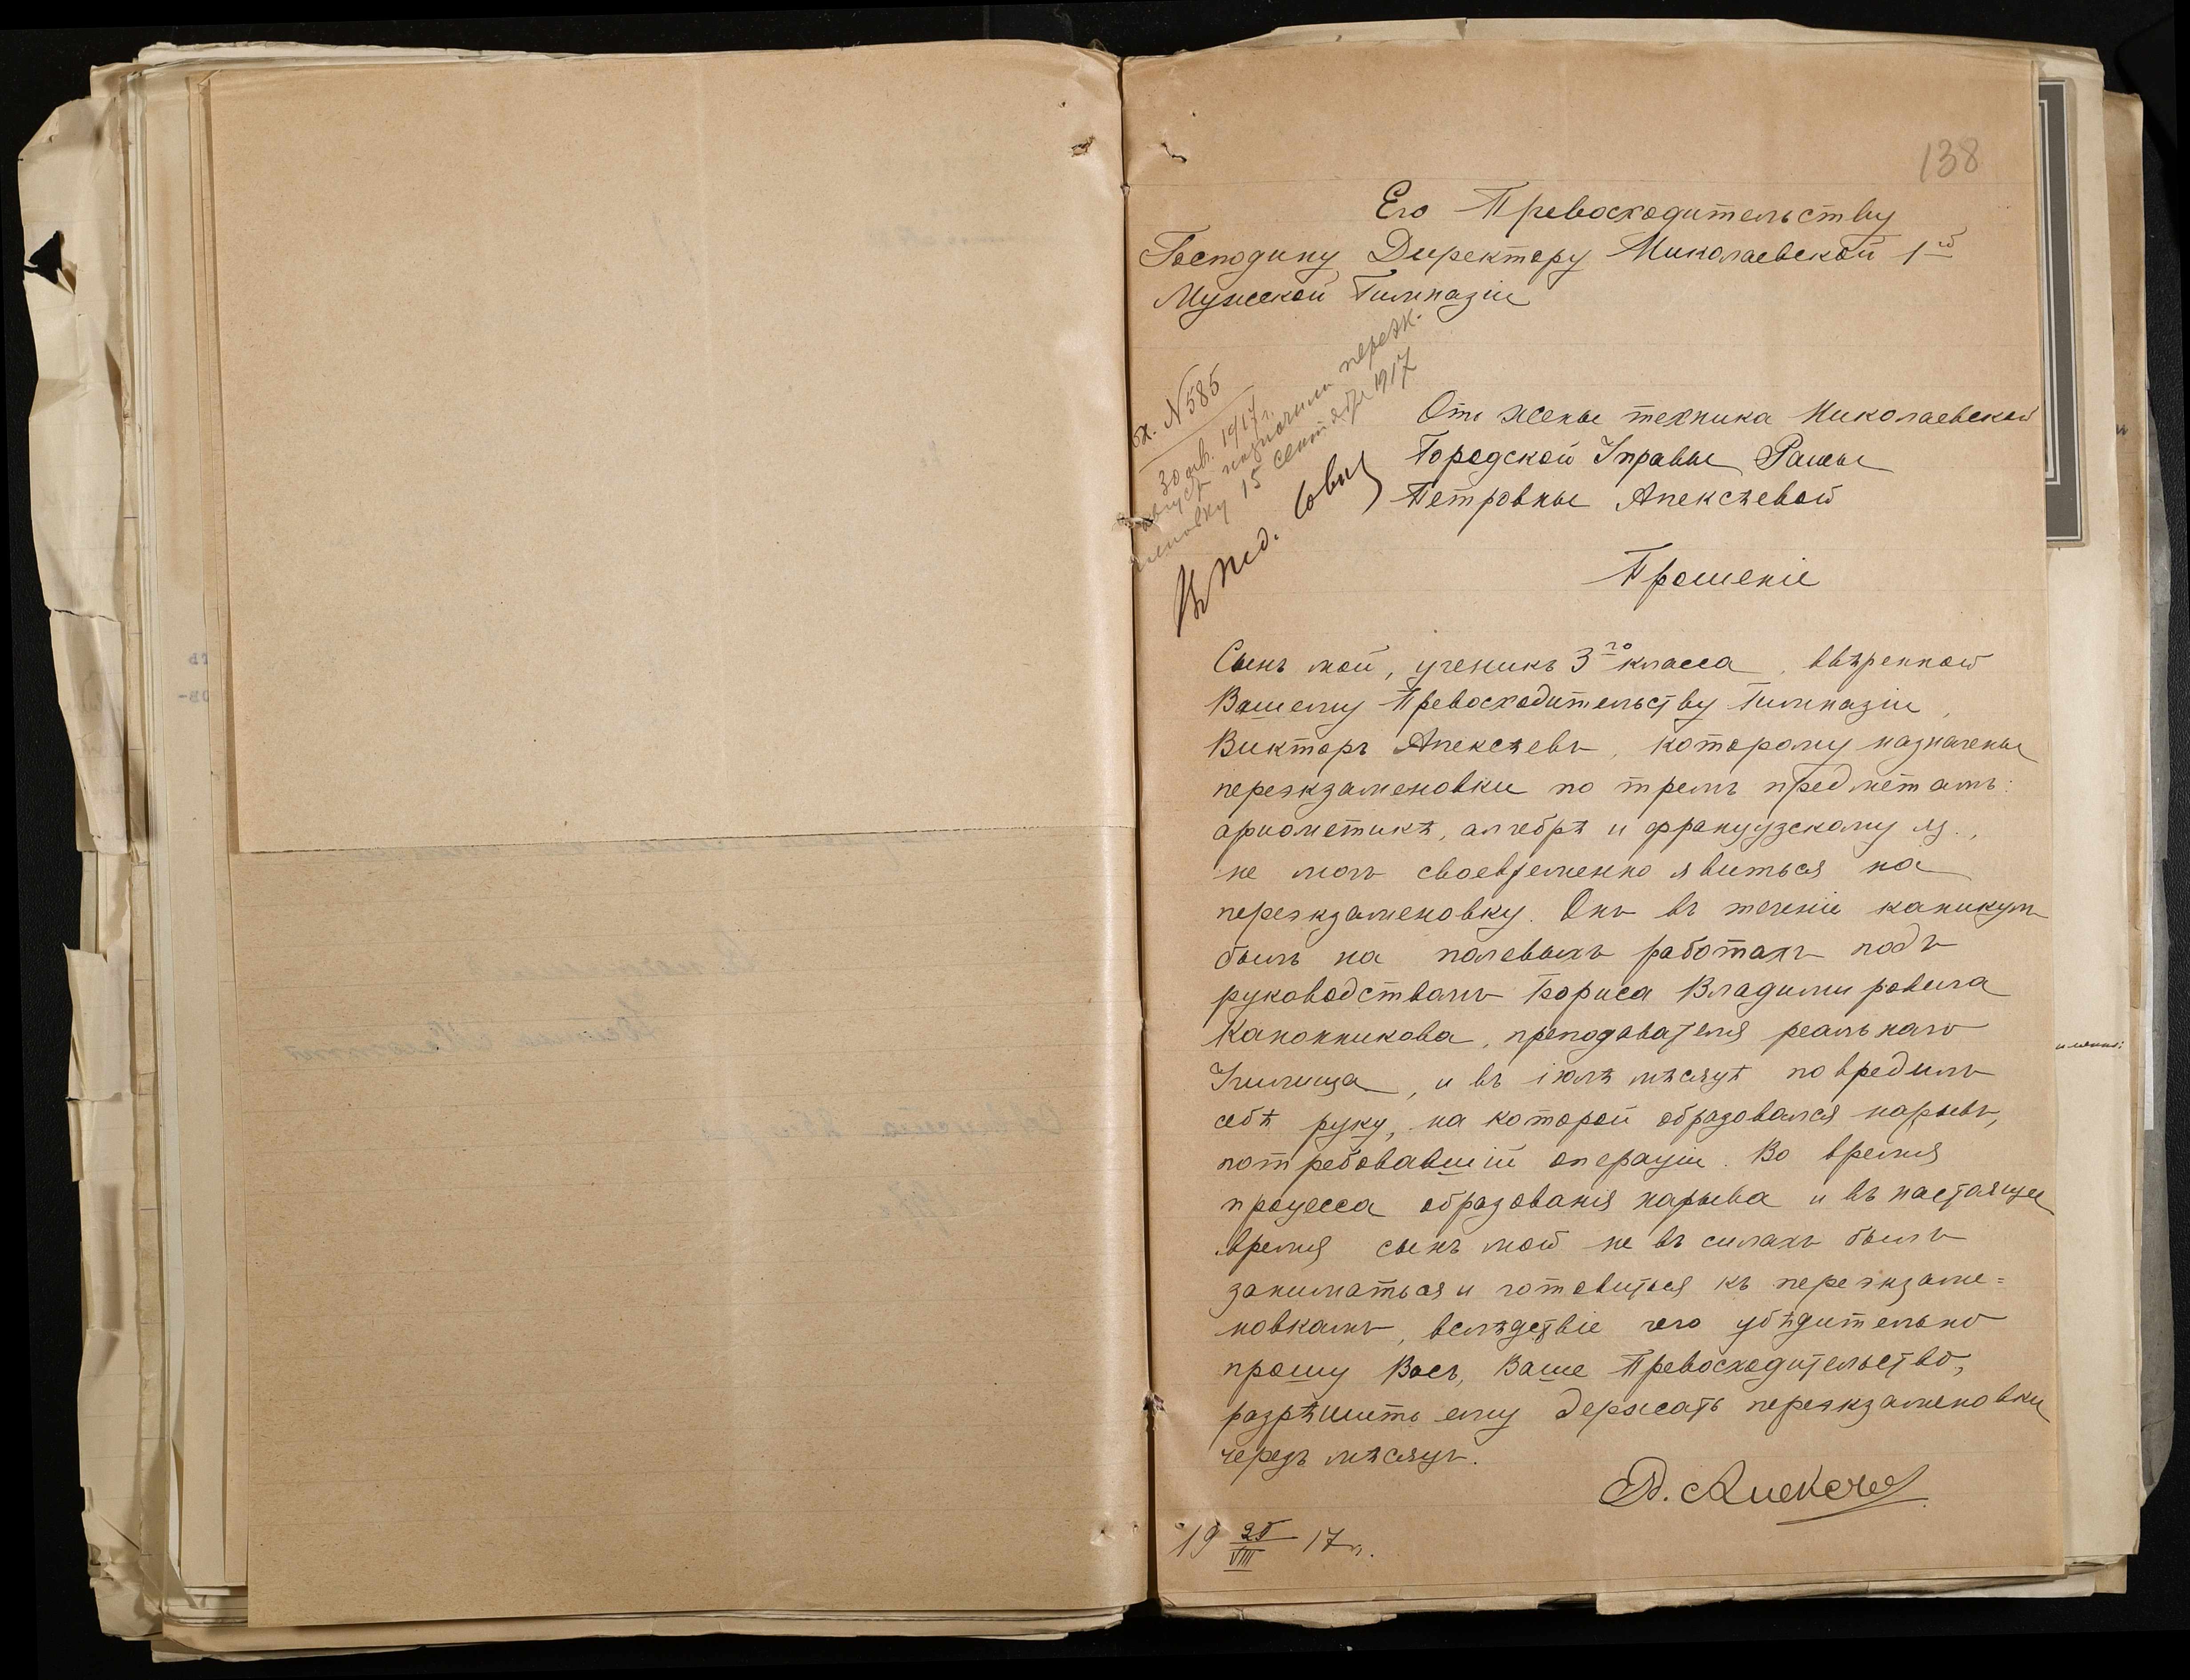 138
Его Превосходительству
Господину Директору Николаевской 1й
Мужской Гимназіи
Вх. № 585
30 ав. 1917 г.
назначили переэк-
15 сентября 1917
Въ Пед. Совѣт
Отъ жены техника Николаевской
Городской Управы Раисы
Петровны Алексѣевой
Прошеніе
Сынъ мой, ученикъ 3го класса, ввѣренной
Вашему Превосходительству Гимназіи,
Викторъ Алексѣевъ, которому назначены
переэкзаменовки по тремъ предметамъ:
ариѳметикѣ, алгебрѣ и французскому яз.,
не могъ своевременно явиться на
переэкзаменовку. Онъ въ теченіи каникулъ
былъ на полевыхъ работахъ подъ
руководствомъ Бориса Владимировича
Канонникова, преподавателя реальнаго
Училища, и въ іюлѣ мѣсяцѣ повредилъ
себѣ руку, на которой образовался нарывъ,
потребовавшій операціи. Во время
процесса образованія нарыва и въ настоящее
время сынъ мой не въ силахъ былъ
заниматься и готовиться къ переэкзаме=
новкамъ, вслѣдствіе чего убѣдительно
прошу Васъ, Ваше Превосходительство,
разрѣшить ему держать переэкзаменовки
черезъ мѣсяцъ.
Р. Алексѣев
19 25/VIII 17 г.